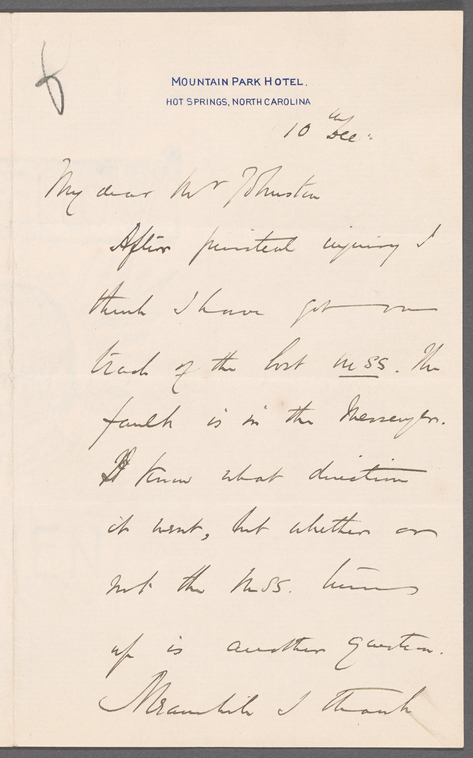 MOUNTAIN PARK HOTEL.
HOT SPRINGS, NORTH CAROLINA
10th Dec:
My dear Mr Johnston
After personal inquiry I
think I have got on
track of the lost MSS. The
fault is in the Messenger.
I know what direction
it went, but whether or
not the MSS. turns
up is another question.
Meanwhile I thank